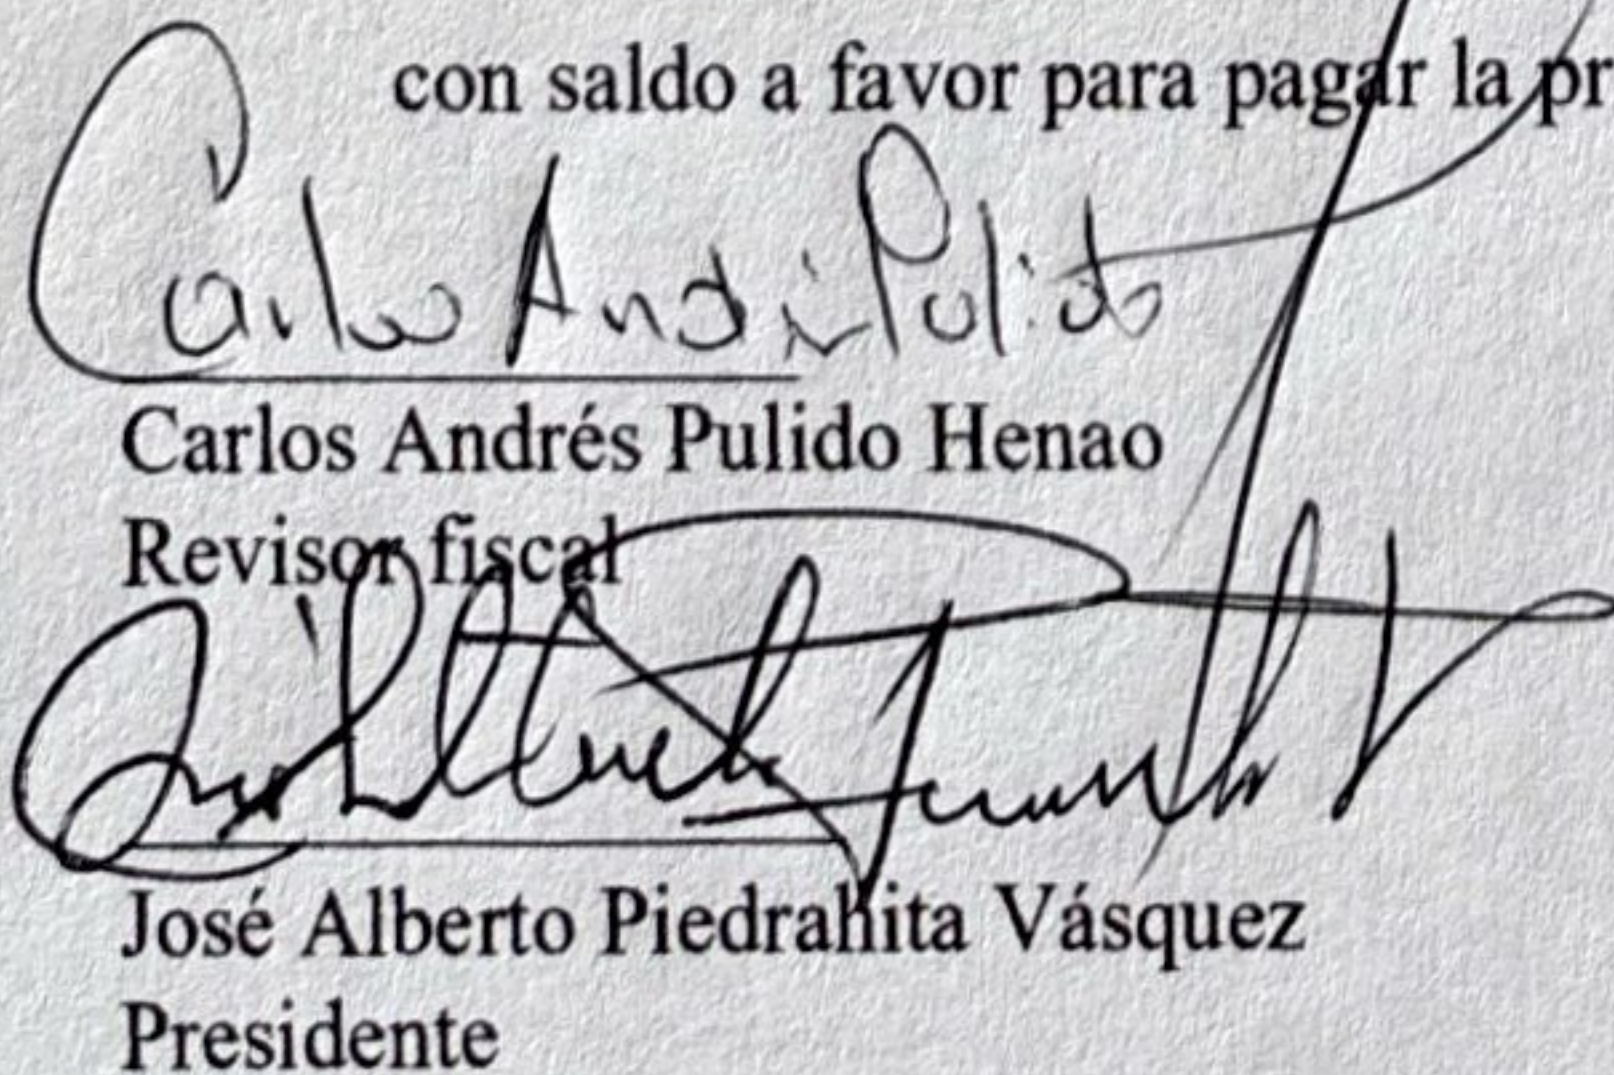 con saldo a favor para pagar la pr
Carlos Andrés Pulido
Carlos Andrés Pulido Henao
Revisor fiscal
José Alberto Piedrahita Vásquez
Presidente